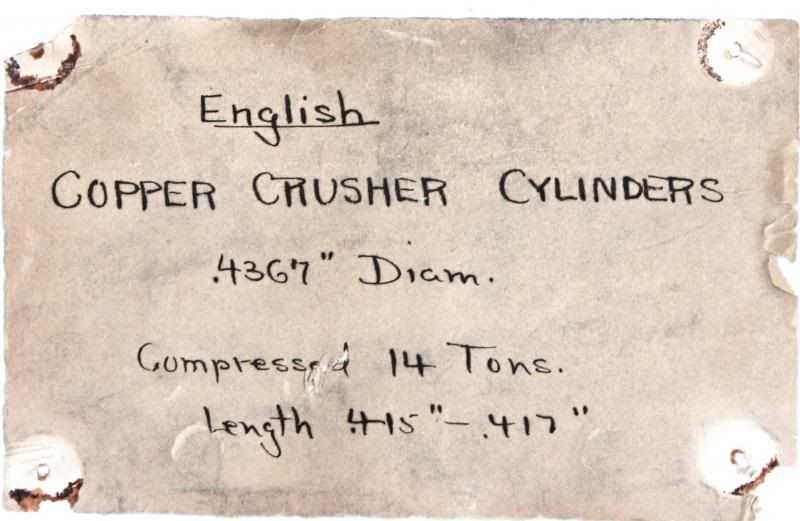 English
COPPER CRUSHER CYLINDERS
.4367" Diam.
Compressed 14 Tons.
Length .415"-.417"